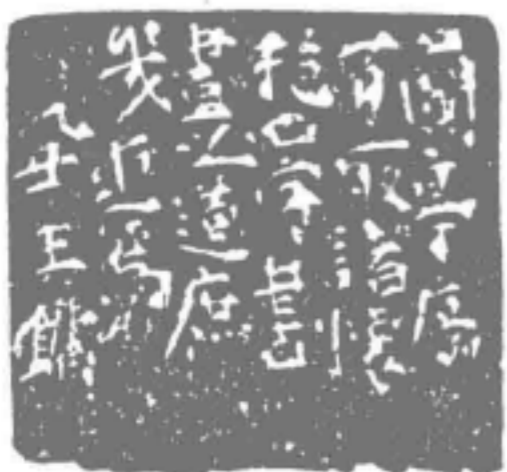 蘭亭序
有取諸懷
抱四字書
畫之道庶
幾近焉
乙丑王鏞